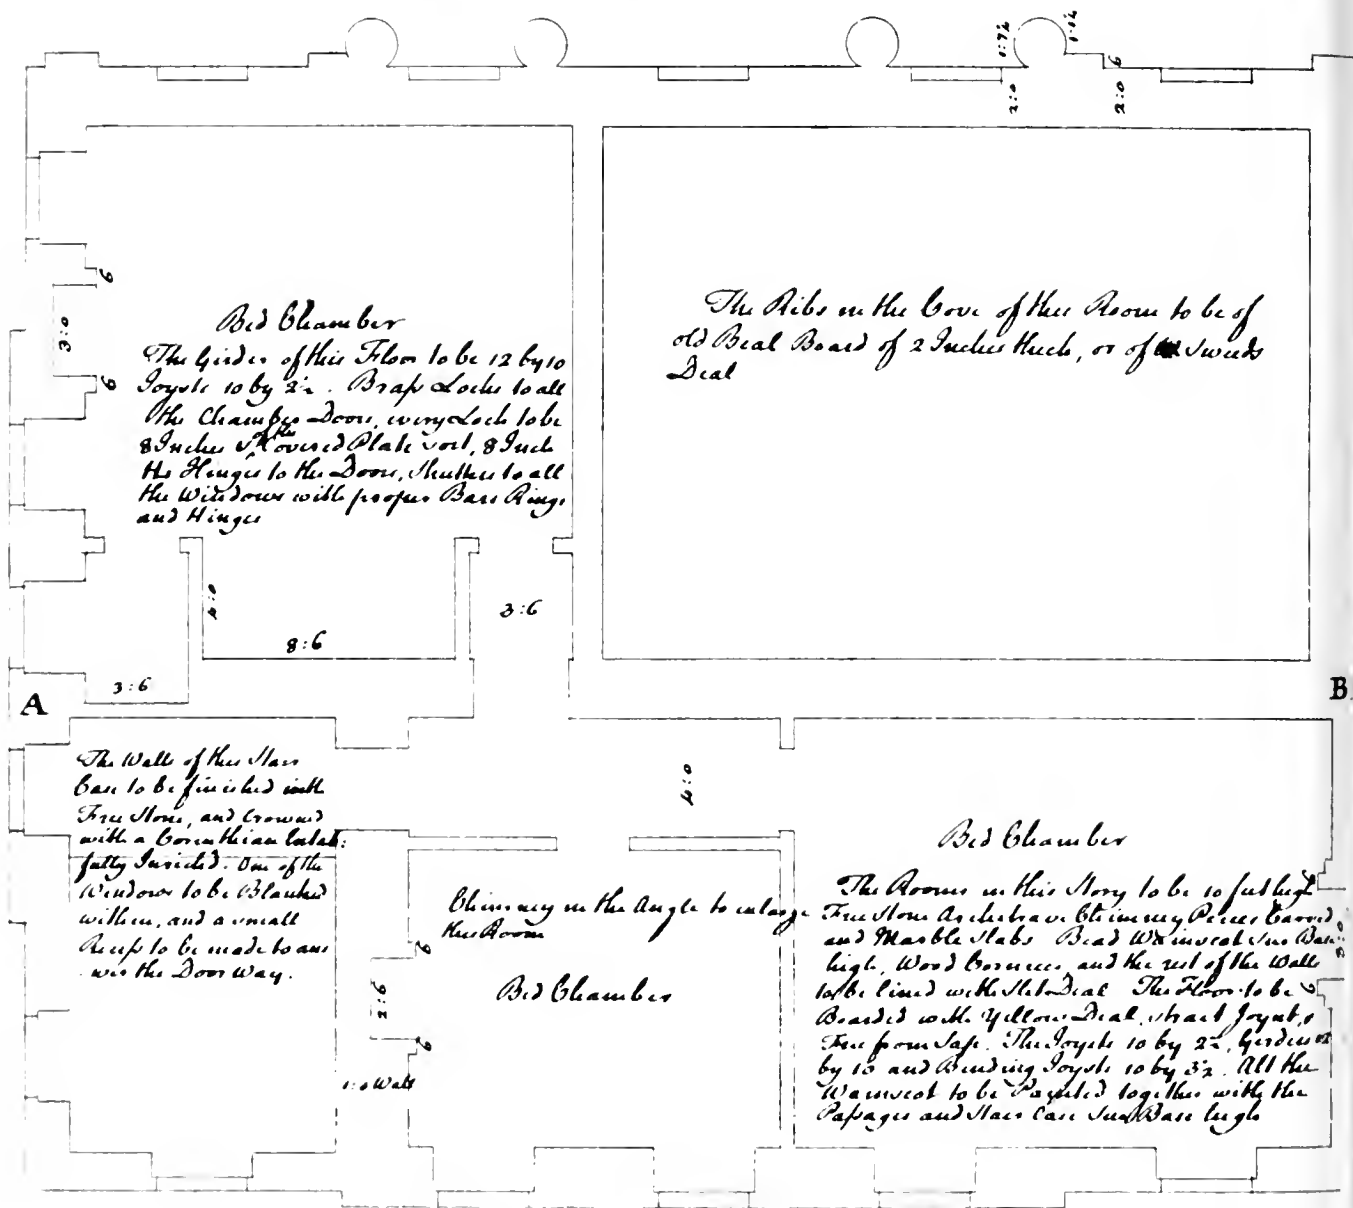 1:7½
1:1½
6
2:0
2:0
6
3:0
6
Bed Chamber
The Girder of this Floor to be 12 by 10
Joysts 10 by 2½. Brass Locks to all
the Chamber Doors, every Lock to be
8 Inches of the Covered Plate sort, 8 Inch
H Hinges to the Doors, Shutters to all
the Windows with proper Bars Rings
and Hinges
The Ribs in the Cove of this Room to be of
old Beal Board of 2 Inches thick, or of Sweeds
Deal
4:0
8:6
3:6
3:6
A
B
The Walls of this Stair
Case to be finished with
Free Stone, and Crowned
with a Corinthian Entab:
fully Inriched. One of the
Windows to be Blanked
within, and a small
Recess to be made to ans
wer the Door Way.
4:0
Chimney in the Angle to enlarge
this Room
Bed Chamber
6
2:6
6
1:0 Wall
Bed Chamber
The Rooms in this Story to be 10 feet high
Free Stone Architrave Chimney Pieces Carved
and Marble Slabs Bead Wainscot Sur Base
high, Wood Cornices, and the rest of the Walls
to be lined with Slit Deal The Floor to be
Boarded with Yellow Deal, strait Joynt, &
Free from Sap. The Joysts 10 by 2½, Girders 12
by 10 and Binding Joysts 10 by 3½. All the
Wainscot to be Paynted together with the
Passages and Stair Case Sur Base high
3:0
6